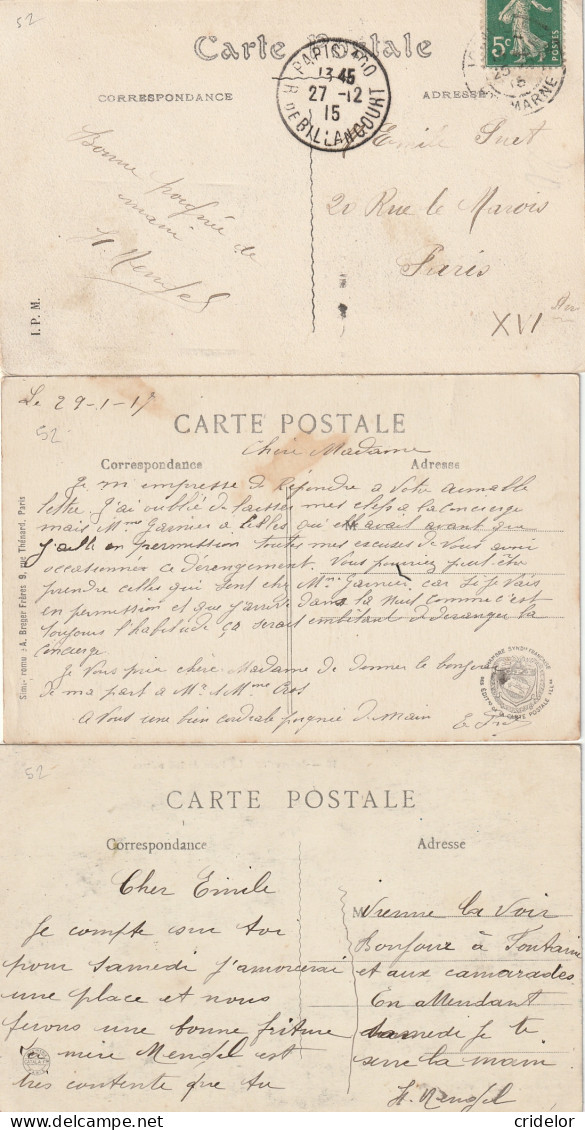 52
Carte Postale
5c
POSTES
CORRESPONDANCE
ADRESSE
PARIS
13 45
27 - 12
15
R. DE BILLANCOURT
25
15
MARNE
Bonne poignée de
main
H. Mendel
Emile Suet
20 Rue le Marois
Paris
XVI
I. P. M.
Le 29-1-17
52-
CARTE POSTALE
Chère Madame
Correspondance
Adresse
Je m'empresse de Répondre a Votre aimable
lettre J'ai oublié de laisser mes clefs a la Concierge
mais Mme Garnier a celles qu'elle avait avant que
J'aille en permission toutes mes excuses de Vous avoir
occasionner ce dérengement. Vous pourriez peut être
prendre celles qui sont chez Mme Garnier car si je Vais
en permission et que j'arrive dans la nuit comme c'est
toujours l'habitude ça serait embêtant de déranger la
Concierge
Je Vous prie chère Madame de donner le bonjour
de ma part a Mr & Mme
A Vous une bien cordiale poignée de Main
M
Simi-bromure A. Breger Frères 9, rue Thénard, Paris
CHAMBRE SYNDle FRANÇAISE
DES ÉDITrs DE LA CARTE POSTALE ILLée
52-
CARTE POSTALE
Correspondance
Adresse
Cher Emile
Je compte sur toi
pour Samedi j'amorcerai
une place et nous
ferons une bonne friture
la mère Mendel est
très contente que tu
M
Vienne la Voir
Bonjour à Fontaine
et aux camarades
En attendant
Samedi Je te
serre la main
H. Mendel